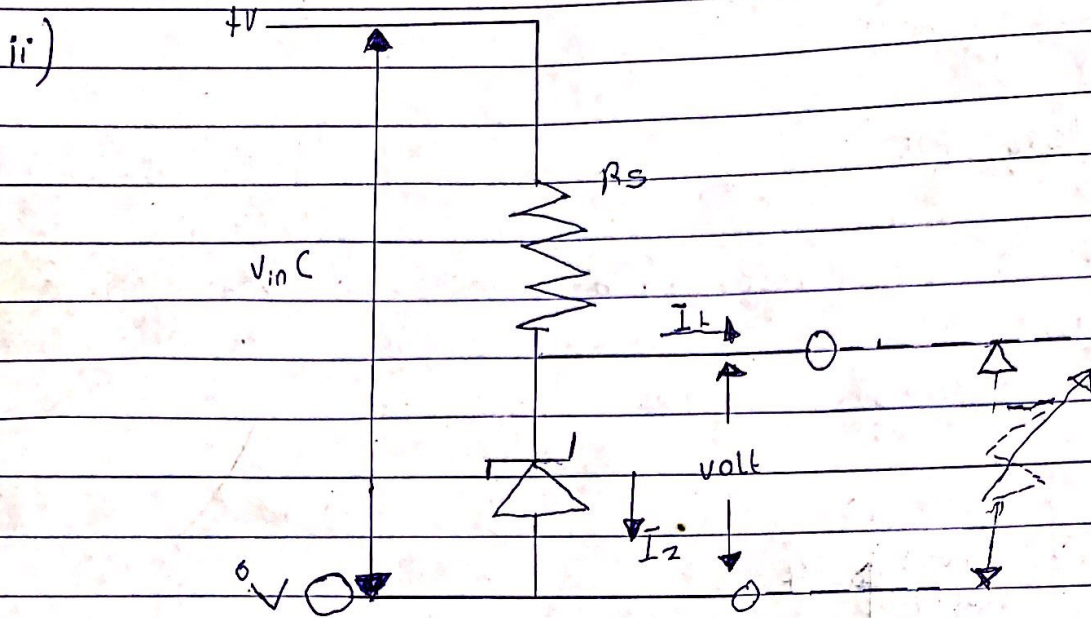 ii)
+V
RS
Vin C
IL
volt
Iz
0V